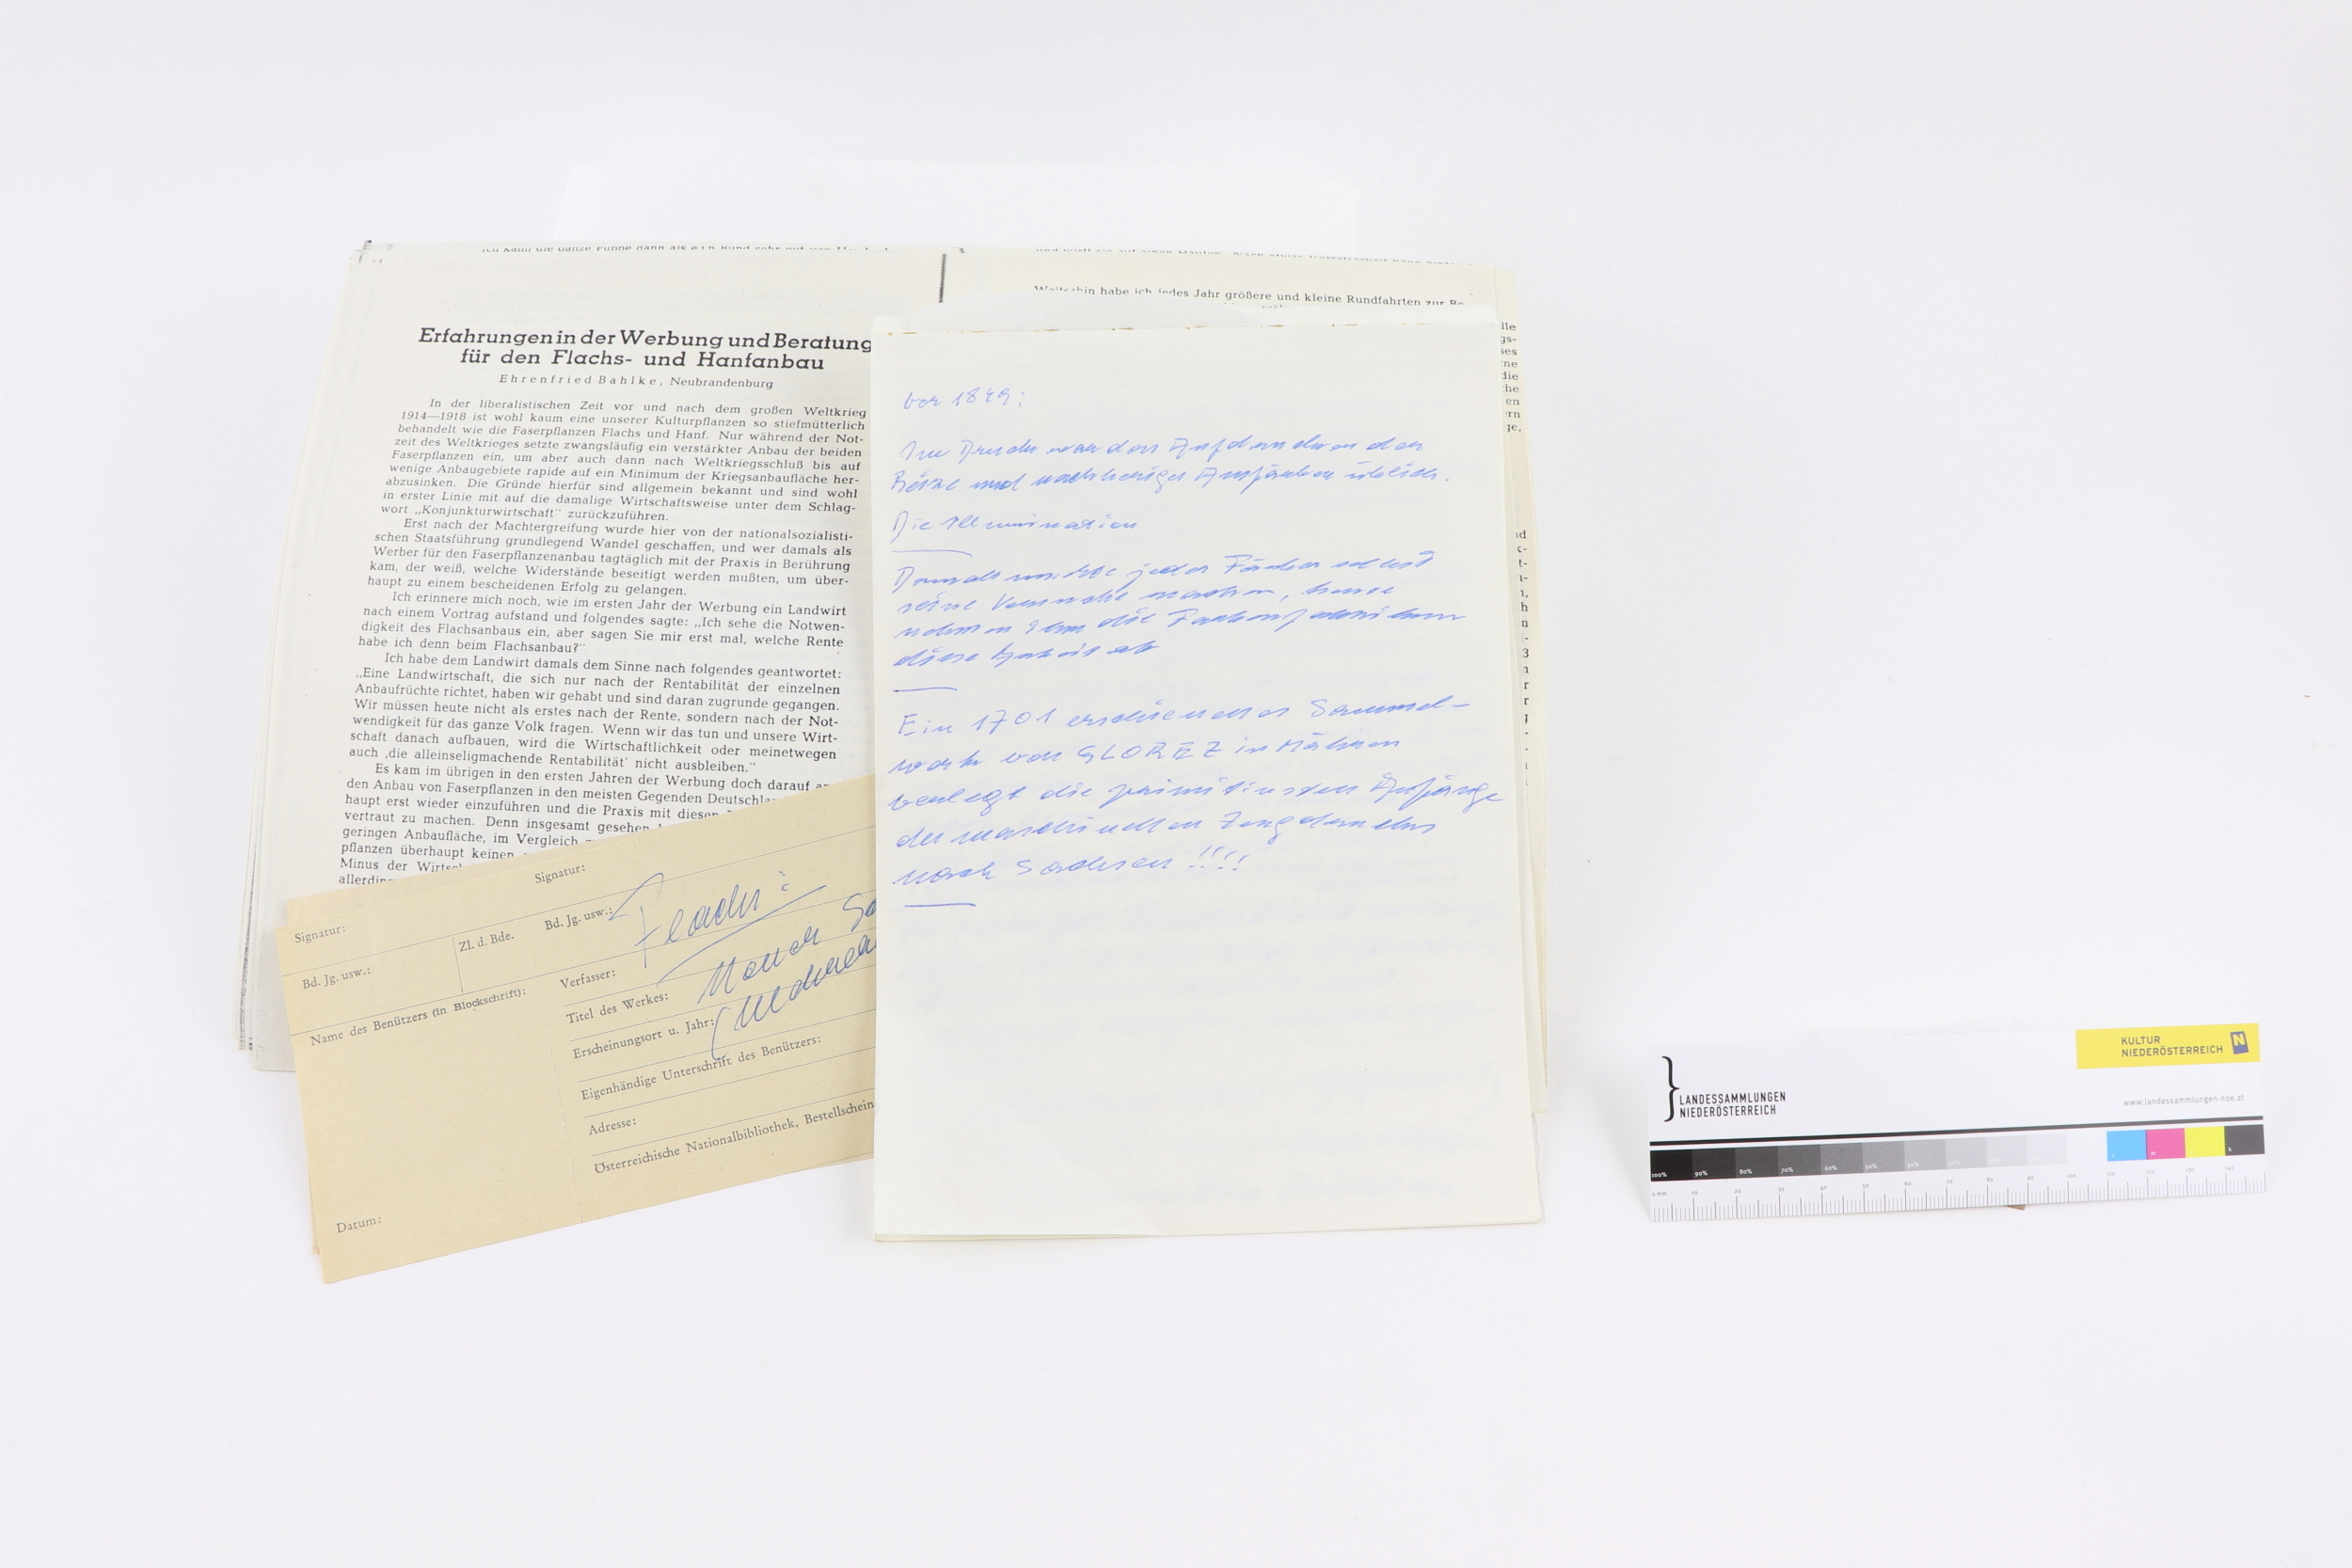 Weiterhin habe ich jedes Jahr größere und kleine Rundfahrten zur Be-
Erfahrungen in der Werbung und Beratung
für den Flachs- und Hanfanbau
Ehrenfried Bahlke, Neubrandenburg
In der liberalistischen Zeit vor und nach dem großen Weltkrieg
1914—1918 ist wohl kaum eine unserer Kulturpflanzen so stiefmütterlich
behandelt wie die Faserpflanzen Flachs und Hanf. Nur während der Not-
zeit des Weltkrieges setzte zwangsläufig ein verstärkter Anbau der beiden
Faserpflanzen ein, um aber auch dann nach Weltkriegsschluß bis auf
wenige Anbaugebiete rapide auf ein Minimum der Kriegsanbaufläche her-
abzusinken. Die Gründe hierfür sind allgemein bekannt und sind wohl
in erster Linie mit auf die damalige Wirtschaftsweise unter dem Schlag-
wort „Konjunkturwirtschaft" zurückzuführen.
Erst nach der Machtergreifung wurde hier von der nationalsozialisti-
schen Staatsführung grundlegend Wandel geschaffen, und wer damals als
Werber für den Faserpflanzenanbau tagtäglich mit der Praxis in Berührung
kam, der weiß, welche Widerstände beseitigt werden mußten, um über-
haupt zu einem bescheidenen Erfolg zu gelangen.
Ich erinnere mich noch, wie im ersten Jahr der Werbung ein Landwirt
nach einem Vortrag aufstand und folgendes sagte: „Ich sehe die Notwen-
digkeit des Flachsanbaus ein, aber sagen Sie mir erst mal, welche Rente
habe ich denn beim Flachsanbau?"
Ich habe dem Landwirt damals dem Sinne nach folgendes geantwortet:
„Eine Landwirtschaft, die sich nur nach der Rentabilität der einzelnen
Anbaufrüchte richtet, haben wir gehabt und sind daran zugrunde gegangen.
Wir müssen heute nicht als erstes nach der Rente, sondern nach der Not-
wendigkeit für das ganze Volk fragen. Wenn wir das tun und unsere Wirt-
schaft danach aufbauen, wird die Wirtschaftlichkeit oder meinetwegen
auch ‚die alleinseligmachende Rentabilität' nicht ausbleiben."
Es kam im übrigen in den ersten Jahren der Werbung doch darauf
den Anbau von Faserpflanzen in den meisten Gegenden
haupt erst wieder einzuführen und die Praxis mit diesen
vertraut zu machen. Denn insgesamt gesehen
geringen Anbaufläche, im Vergleich
pflanzen überhaupt keinen
Minus der
Signatur:
Bd. Jg. usw.:
Zl. d. Bde.
Name des Benützers (in Blockschrift):
Datum:
Signatur:
Bd. Jg. usw.:
Flachs:
Verfasser:
Titel des Werkes:
Erscheinungsort u. Jahr:
Eigenhändige Unterschrift des Benützers:
Adresse:
Österreichische Nationalbibliothek, Bestellschein
vor 1849:
Im Drucke war das Aufdrucken der
Beize und nachheriges Ausfärben üblich.
Die Illumination
Damals mußte jeder Färber selbst
seine Versuche machen, heute
nehmen ihm die Farbenfabriken
diese Arbeit ab
Ein 1701 erschienenes Sammel-
werk von GLOREZ in Mähren
verlegt die primitivsten Anfänge
des maschinellen Zeugdrucks
nach Sachsen !!!!
KULTUR
NIEDERÖSTERREICH
N
LANDESSAMMLUNGEN
NIEDERÖSTERREICH
www.landessammlungen-noe.at
100% 90% 80% 70% 60% 50% 40%
0 mm 10 20 30 40 50 60 70 80 90 100 110 120 130 140